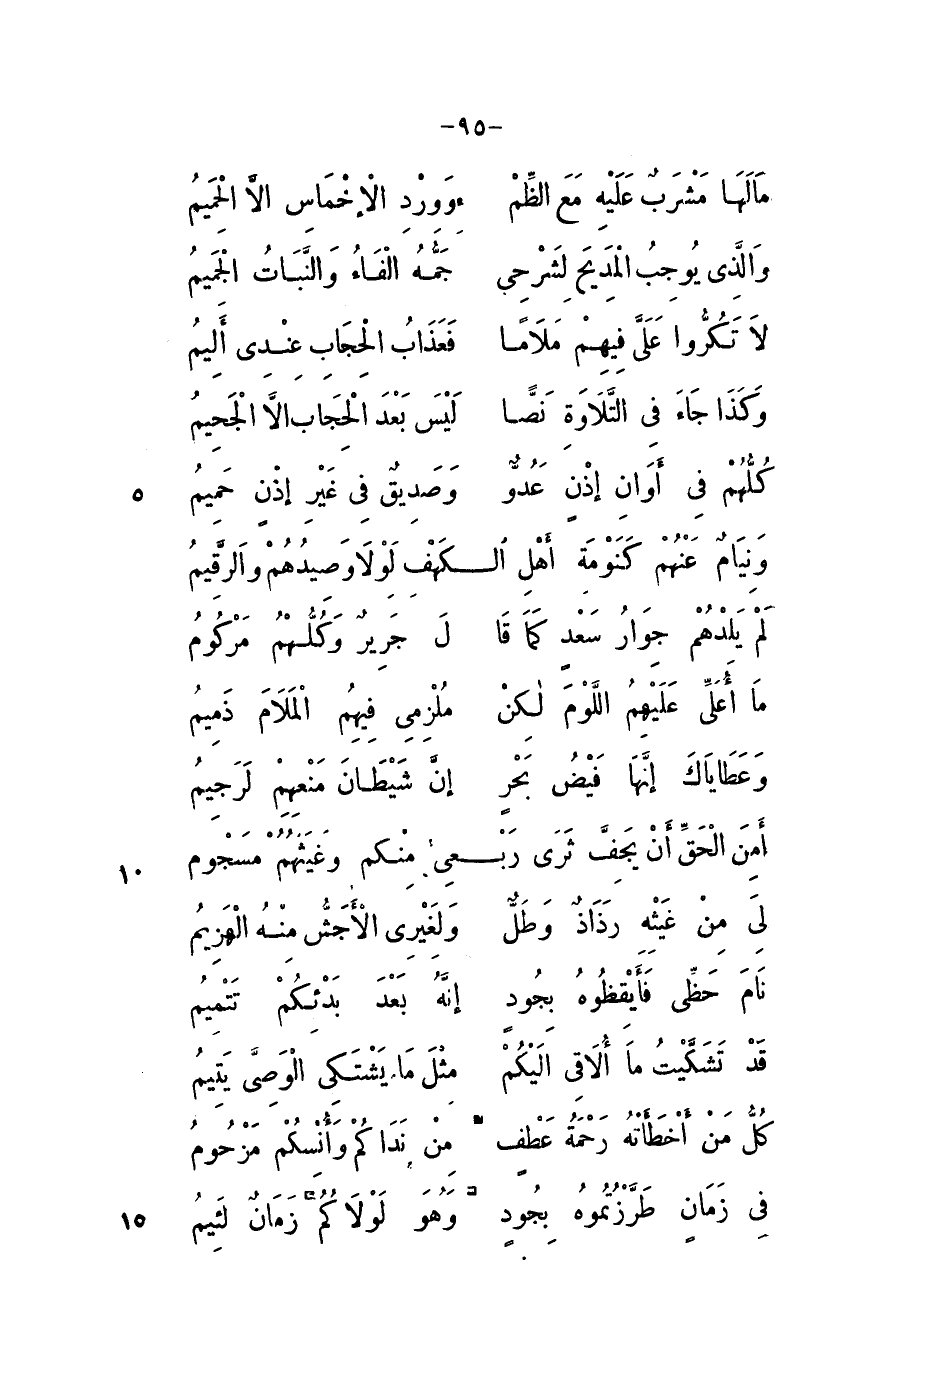 -٩٥-
مَالَهَا مَشْرَبٌ عَلَيْهِ مَعَ الظِّمْ وَوِرْدِ الْإِخْمَاسِ الاَّ الْحَمِيمُ
وَالَّذِى يُوجِبُ الْمَدِيحَ لِشَرْحِي جَمُّهُ الْفَاءُ وَالنَّبَاتُ الْجَمِيمُ
لاَ تَكُرُّوا عَلَىَّ فِيهِمْ مَلَامًا فَعَذَابُ الْحِجَابِ عِنْدِى أَلِيمُ
وَكَذَا جَاءَ فِى التَّلَاوَةِ نَصًّا لَيْسَ بَعْدَ الْحِجَابِ الاَّ الْجَحِيمُ
كُلُّهُمْ فِى أَوَانِ إِذْنٍ عَدُوٌّ وَصَدِيقٌ فِى غَيْرِ إِذْنٍ حَمِيمُ ٥
وَنِيَامٌ عَنْهُمْ كَنَوْمَةِ أَهْلِ الْكَهْفِ لَوْلَا وَصِيدُهُمْ وَالرَّقِيمُ
لَمْ يَلِدْهُمْ جِوَارُ سَعْدٍ كَمَا قَا لَ جَرِيرٌ وَكُلُّهُمْ مَرْكُومُ
مَا أُعَلِّى عَلَيْهِمُ اللَّوْمَ لٰكِنْ مُلْزِمِى فِيهِمُ الْمَلَامَ ذَمِيمُ
وَعَطَايَاكَ إِنَّهَا فَيْضُ بَحْرٍ إِنَّ شَيْطَانَ مَنْعِهِمْ لَرَجِيمُ
أَمِنَ الْحَقِّ أَنْ يَجِفَّ ثَرَى رَبْعِى مِنْكُمْ وَغَيْثُهُمْ مَسْجُوم ١٠
لِىَ مِنْ غَيْثِهِ رَذَاذٌ وَطَلٌّ وَلِغَيْرِى الْأَجَشُّ مِنْهُ الْهَزِيمُ
نَامَ حَظِّى فَأَيْقِظُوهُ بِجُودٍ إِنَّهُ بَعْدَ بَدْئِكُمْ تَتْمِيمُ
قَدْ تَشَكَّيْتُ مَا أُلَاقِى الَيْكُمْ مِثْلَ مَا يَشْتَكِى الْوَصِىَّ يَتِيمُ
كُلُّ مَنْ أَخْطَأَتْهُ رَحْمَةُ عَطْفٍ مِنْ نَدَاكُمْ وَأُنْسِكُمْ مَرْحُومُ
فِى زَمَانٍ طَرَّزْتُمُوهُ بِجُودٍ وَهُوَ لَوْلَاكُمُ زَمَانٌ لَئِيمُ ١٥